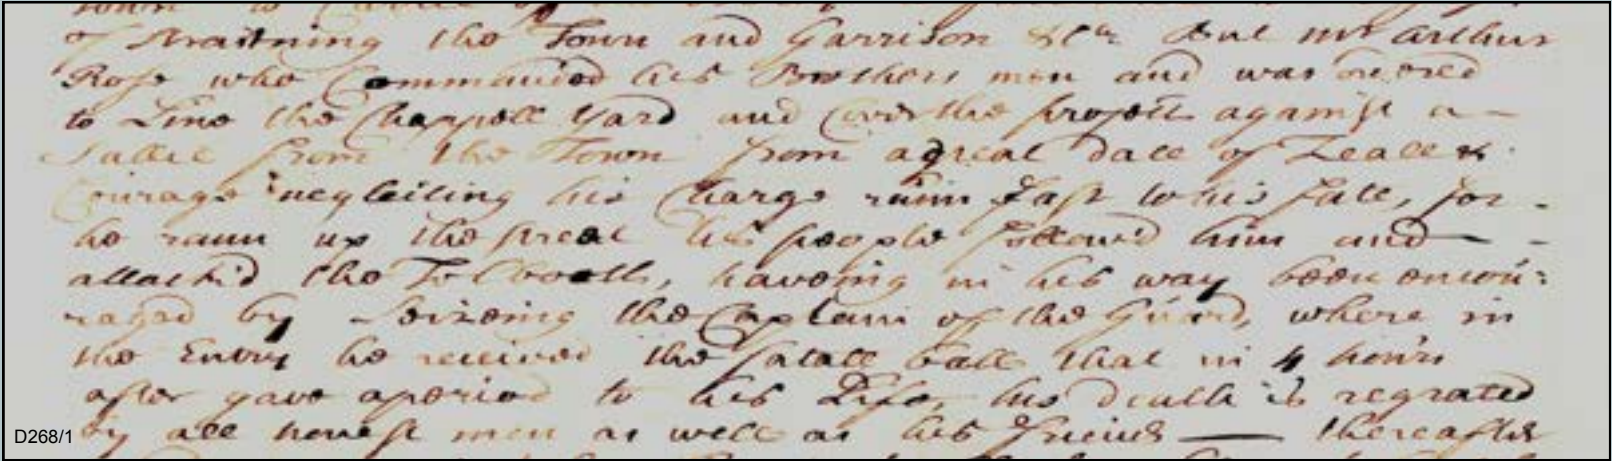 of Straitning the Town and Garrison &ca But mr Arthur
Rose who Commanded his Brothers men and was ordered
to Line the Chappell Yard and Cover the projett against a
Sallie from the Town from a great dale of Zeall &
Courage neglecting his Charge runn fast to his fate, for
he rann up the street his people followed him and
attack'd the Tolbooth, haveing in his way been encou:
raged by Seizeing the Captain of the Guard, where in
the Entry he received the fatall ball that in 4 hours
after gave a period to his Life, his death is regrated
by all honest men as well as his friends — thereafter
D268/1